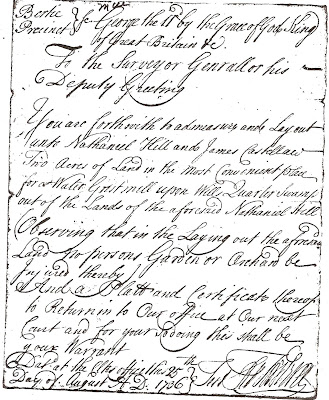 Bertie
Precinct } Sc George the 2d by the Grace of God King
of Great Britain &c
To the Surveyor Genrall or his
Deputy Greeting
You are forthwith to admeasure and Lay out
unto Nathaniel Hill and James Castellaw
Two Acres of Land in the most Convenient place
for a Water Gristmill upon Wills Quarter Swamp
out of the Lands of the aforesaid Nathaniel Hill
Observing that in the Laying out the aforesaid
Land no persons Garden or Orchard be
Injured thereby
And a Platt and Certificate thereof
to Return in to Our office at Our next
Court and for your Sodoing this shall be
your Warrant
Dat at the office this 25th
Day of August A.D. 1736